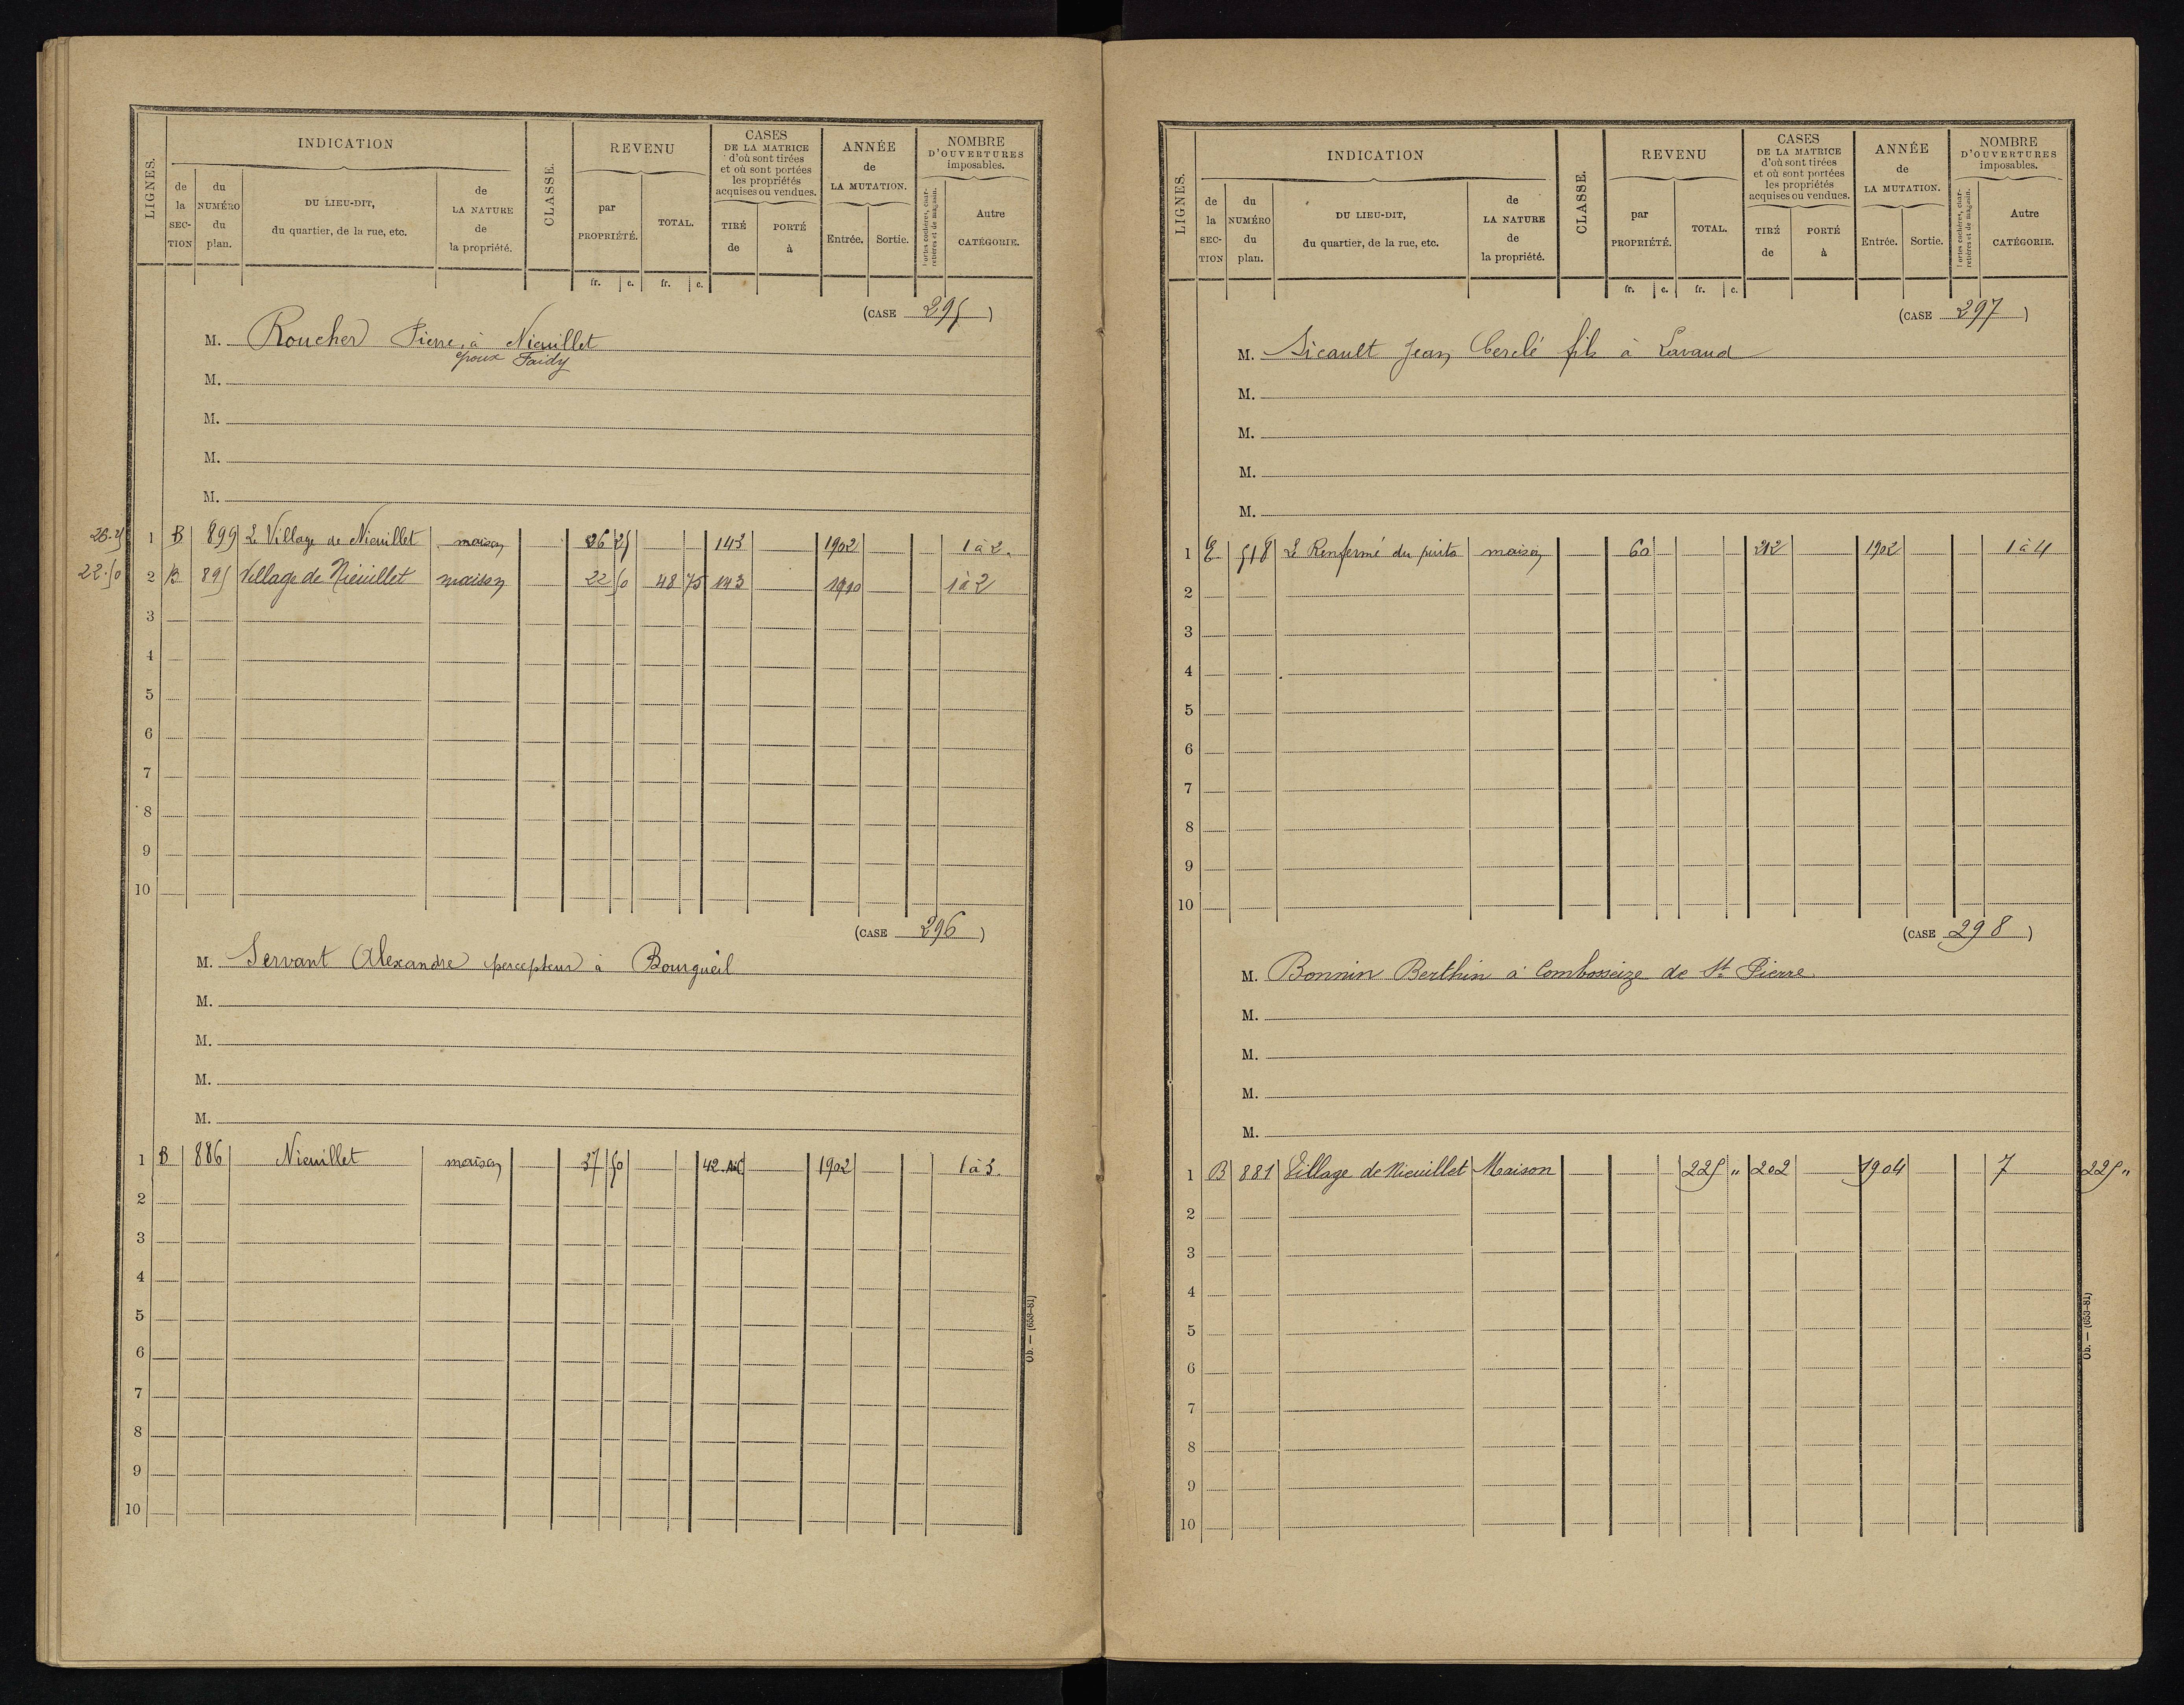 LIGNES.
INDICATION
de la SECTION
du NUMÉRO du plan.
DU LIEU-DIT, du quartier, de la rue, etc.
de LA NATURE de la propriété.
CLASSE.
REVENU
par PROPRIÉTÉ.
TOTAL.
CASES DE LA MATRICE d'où sont tirées et où sont portées les propriétés acquises ou vendues.
TIRÉ de
PORTÉ à
ANNÉE de LA MUTATION.
Entrée.
Sortie.
NOMBRE D'OUVERTURES imposables.
Portes cochères, charretières et de magasin.
Autre CATÉGORIE.
fr. c. fr. c.
(CASE 295)
M. Roucher Pierre, à Nieuillet
époux Faidy
M.
M.
M.
M.
26.25 1 B 899 Le Village de Nieuillet maison 26 25 143 1902 1 à 2.
22.50 2 B 895 Village de Nieuillet maison 22 50 48 75 143 1910 1 à 2
3
4
5
6
7
8
9
10
(CASE 296)
M. Servant Alexandre percepteur à Bourgueil
M.
M.
M.
M.
1 B 886 Nieuillet maison 37 50 42 1902 1 à 3.
2
3
4
5
6
7
8
9
10
Ob. — (653-81)
LIGNES.
INDICATION
de la SECTION
du NUMÉRO du plan.
DU LIEU-DIT, du quartier, de la rue, etc.
de LA NATURE de la propriété.
CLASSE.
REVENU
par PROPRIÉTÉ.
TOTAL.
CASES DE LA MATRICE d'où sont tirées et où sont portées les propriétés acquises ou vendues.
TIRÉ de
PORTÉ à
ANNÉE de LA MUTATION.
Entrée.
Sortie.
NOMBRE D'OUVERTURES imposables.
Portes cochères, charretières et de magasin.
Autre CATÉGORIE.
fr. c. fr. c.
(CASE 297)
M. Sicault Jean Cerclé fils à Lavaud
M.
M.
M.
M.
1 E 518 Le Renfermé du puits maison 60 212 1902 1 à 4
2
3
4
5
6
7
8
9
10
(CASE 298)
M. Bonnin Berthin à Combosseize de St Pierre
M.
M.
M.
M.
1 B 881 Village de Nieuillet Maison 225 " 202 1904 7 225 "
2
3
4
5
6
7
8
9
10
Ob. — (653-81)